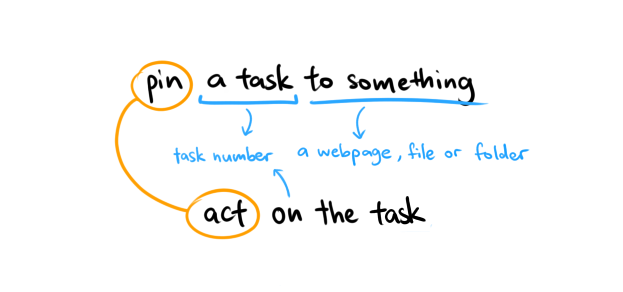 pin a task to something
task number a webpage, file or folder
act on the task